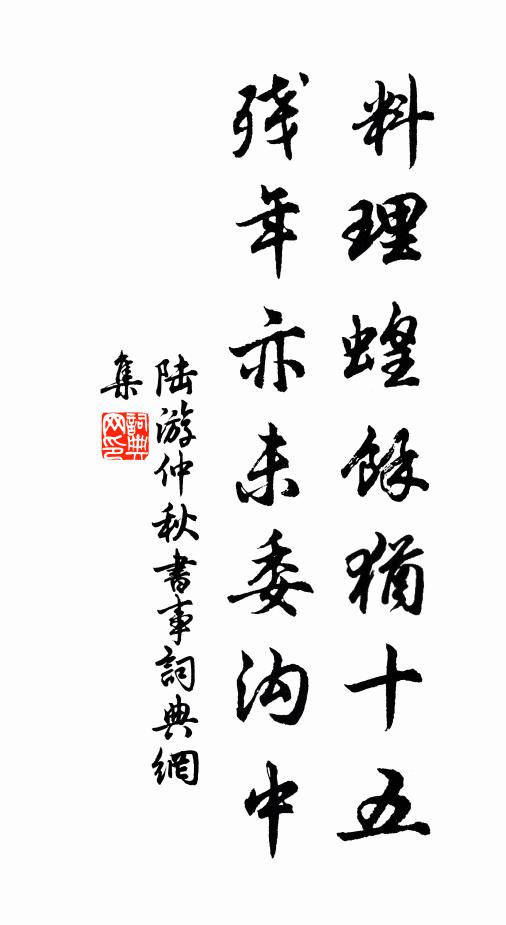 料理蝗餘猶十五
残年亦未委沟中
陆游仲秋書事詞典網
集
詞典网印